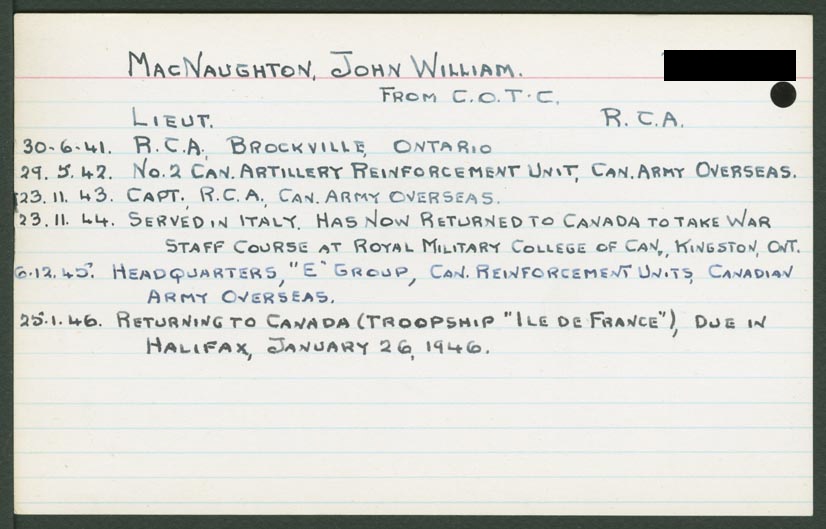 MacNaughton, John William.
From C.O.T.C.
Lieut. R.C.A.
30-6-41. R.C.A. Brockville, Ontario
29. 5. 42. No. 2 Can. Artillery Reinforcement Unit, Can. Army Overseas.
23. 11. 43. Capt., R.C.A., Can. Army Overseas.
23. 11. 44. Served in Italy. Has Now Returned to Canada to take War
Staff Course at Royal Military College of Can., Kingston, Ont.
6.12.45. Headquarters, "E" Group, Can. Reinforcement Units, Canadian
Army Overseas.
25.1.46. Returning to Canada (Troopship "Ile de France"), Due in
Halifax, January 26, 1946.